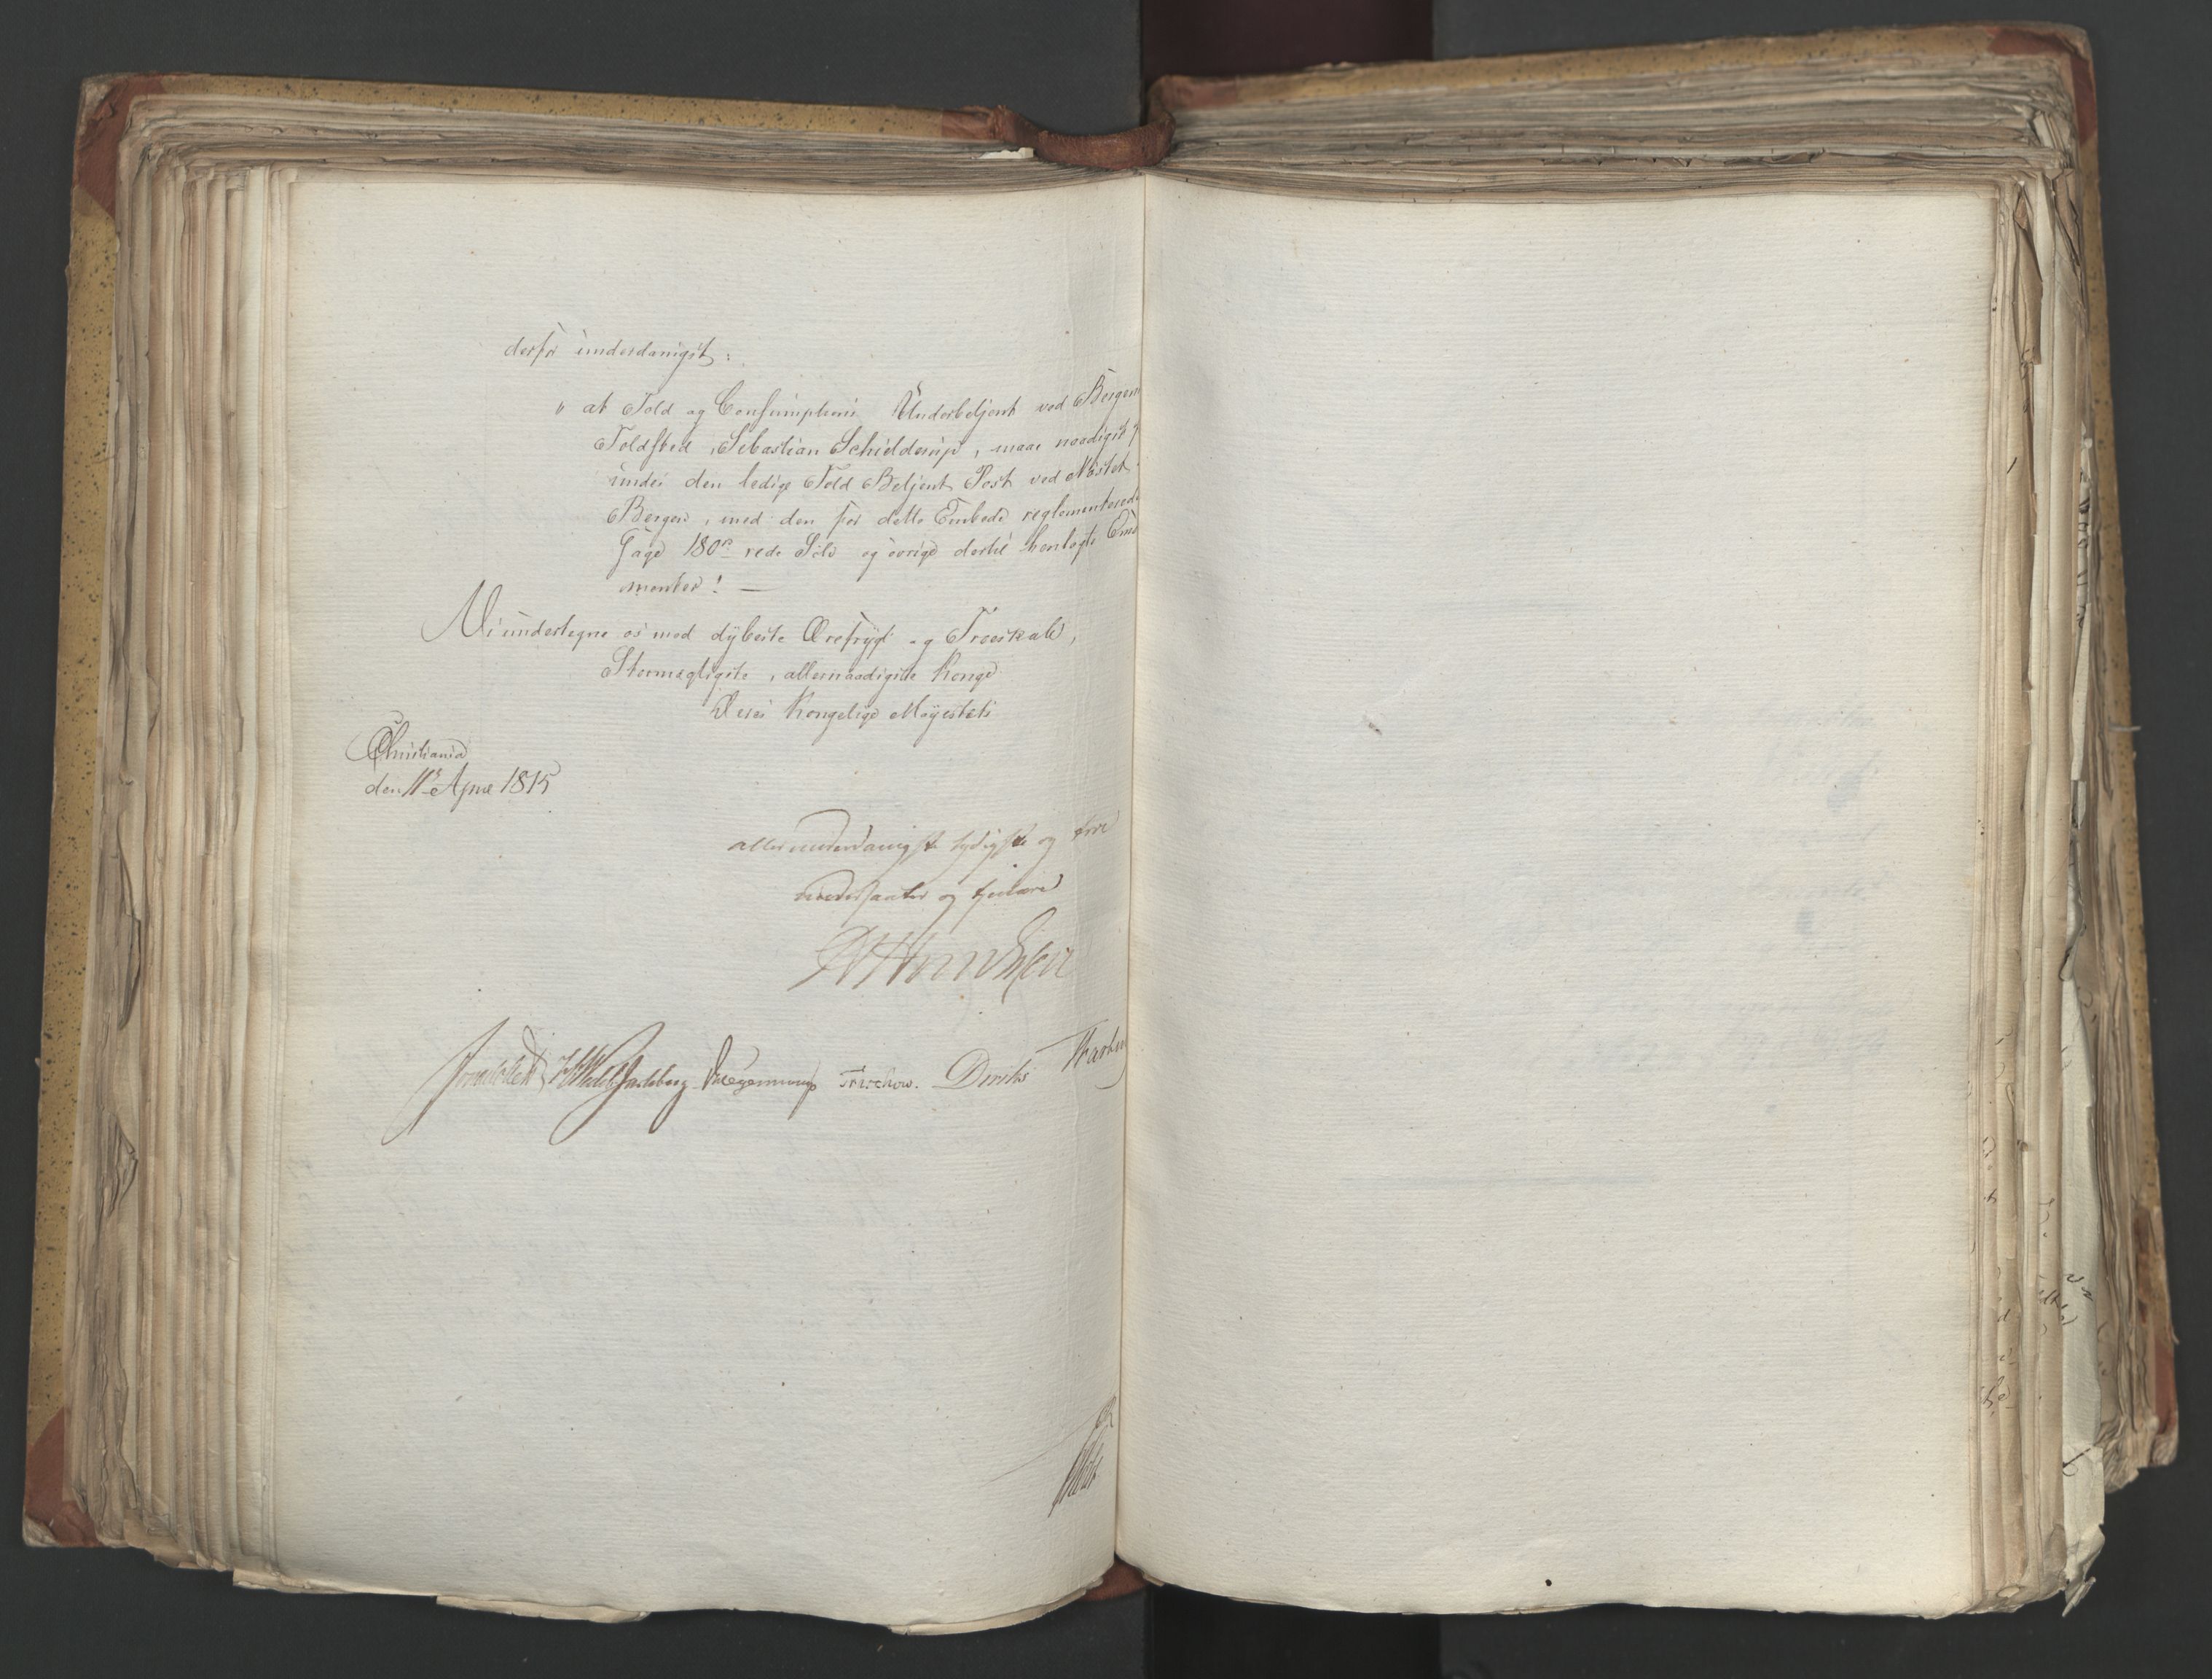 derfor underdanigst:
" at Told og Consumptions Underbetjent ved Bergens
Toldsted, Sebastian Schielderup, maae naadigst
undes den ledige Told Betjent Post ved Nøstet
Bergen, med den for dette Embede reglementerede
Gage 180 rd rede Sølv og øvrige dertil henlagte Emolu
menter! —
Vi undertegne os med dybeste Ærefrygt og Troeskab,
Stormægtigste, allernaadigste Konge
Deres Kongelige Majestæts
Christiania
den 11te April 1815
allerunderdanigst lydigste og troe
undersaatter og tjenere
Sommerhielm Wedel Jarlsberg Krogh Treschow. Diriks Fasting